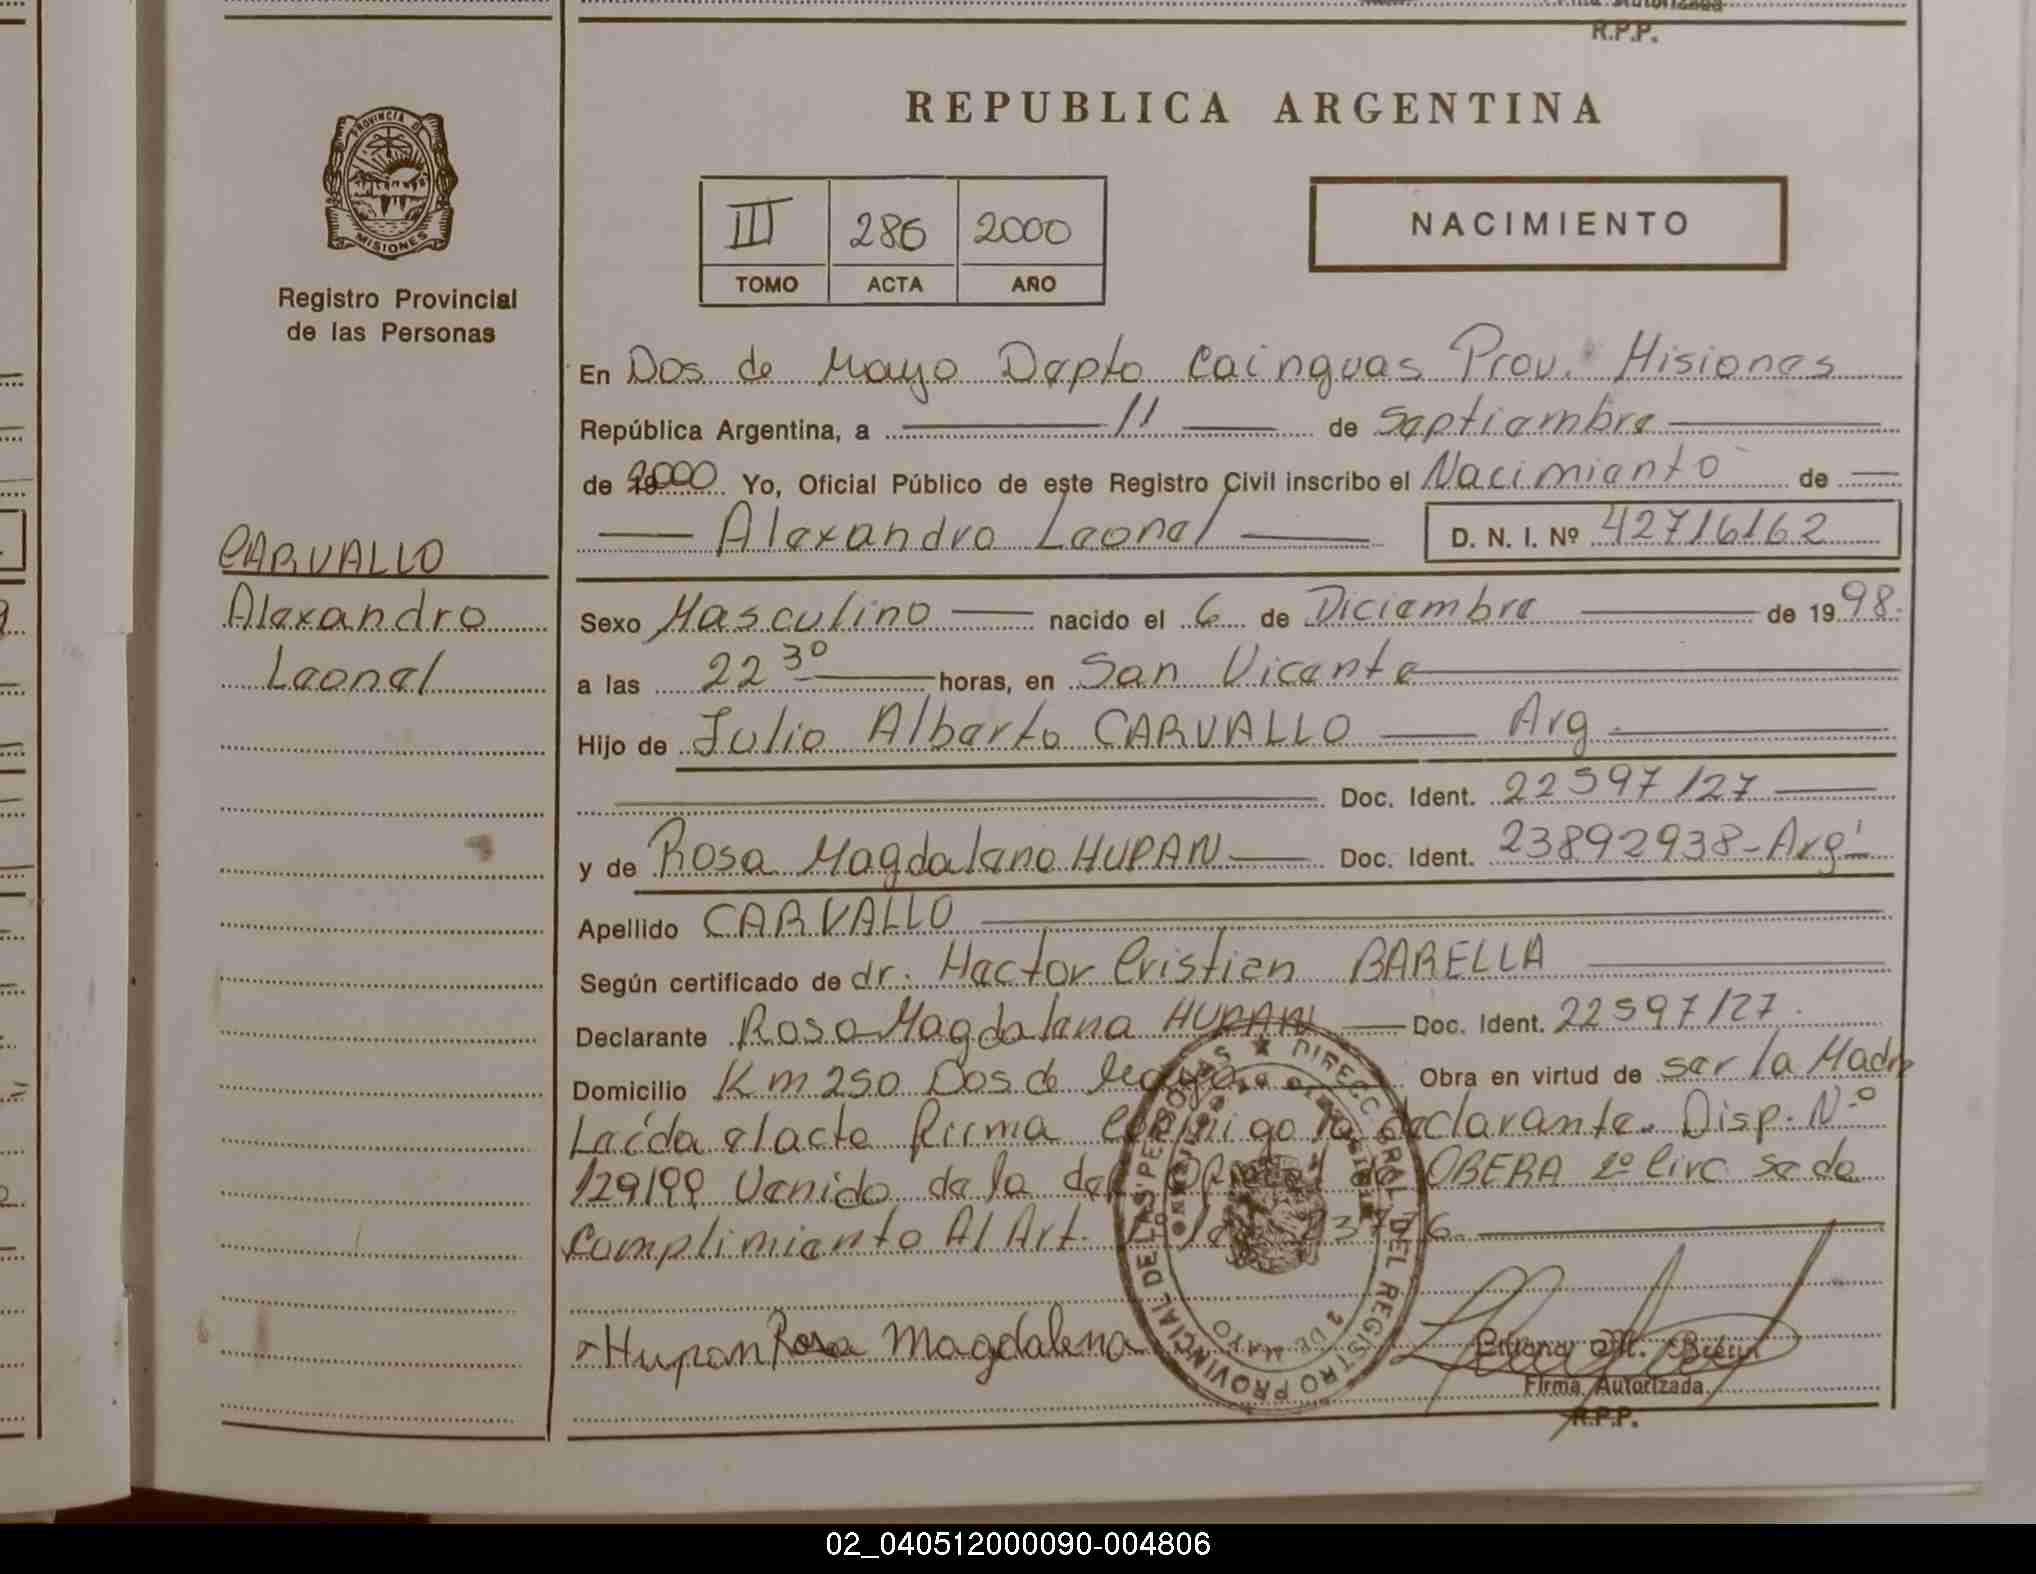 R.P.P.
PROVINCIA DE
MISIONES
Registro Provincial
de las Personas
REPUBLICA ARGENTINA
III 286 2000
TOMO ACTA AÑO
NACIMIENTO
En Dos de Mayo Depto Cainguas Prov. Misiones
República Argentina, a 11 de Septiembre
de 2000 Yo, Oficial Público de este Registro Civil inscribo el Nacimiento de
Alexandro Leonel D. N. I. Nº 42716162
CARVALLO
Alexandro
Leonel
Sexo Masculino nacido el 6 de Diciembre de 1998.
a las 22 30 horas, en San Vicente
Hijo de Julio Alberto CARVALLO Arg.
Doc. Ident. 22597127
y de Rosa Magdalena HUPAN Doc. Ident. 23892938-Arg
Apellido CARVALLO
Según certificado de dr. Hector Cristian BARELLA
Declarante Rosa Magdalena HUPAN Doc. Ident. 22597127.
Domicilio Km 250 Dos de Mayo Obra en virtud de ser la Madre
Leída el acta firma conmigo la declarante. Disp. Nº
129/99 Venido de la del OBERA 2º Circ se da
Cumplimiento Al Art. 23776.
DIRECC. GRAL. DEL REGISTRO PROVINCIAL DE LAS PERSONAS
2 DE MAYO
Hupan Rosa Magdalena
Firma Autorizada
R.P.P.
02_040512000090-004806